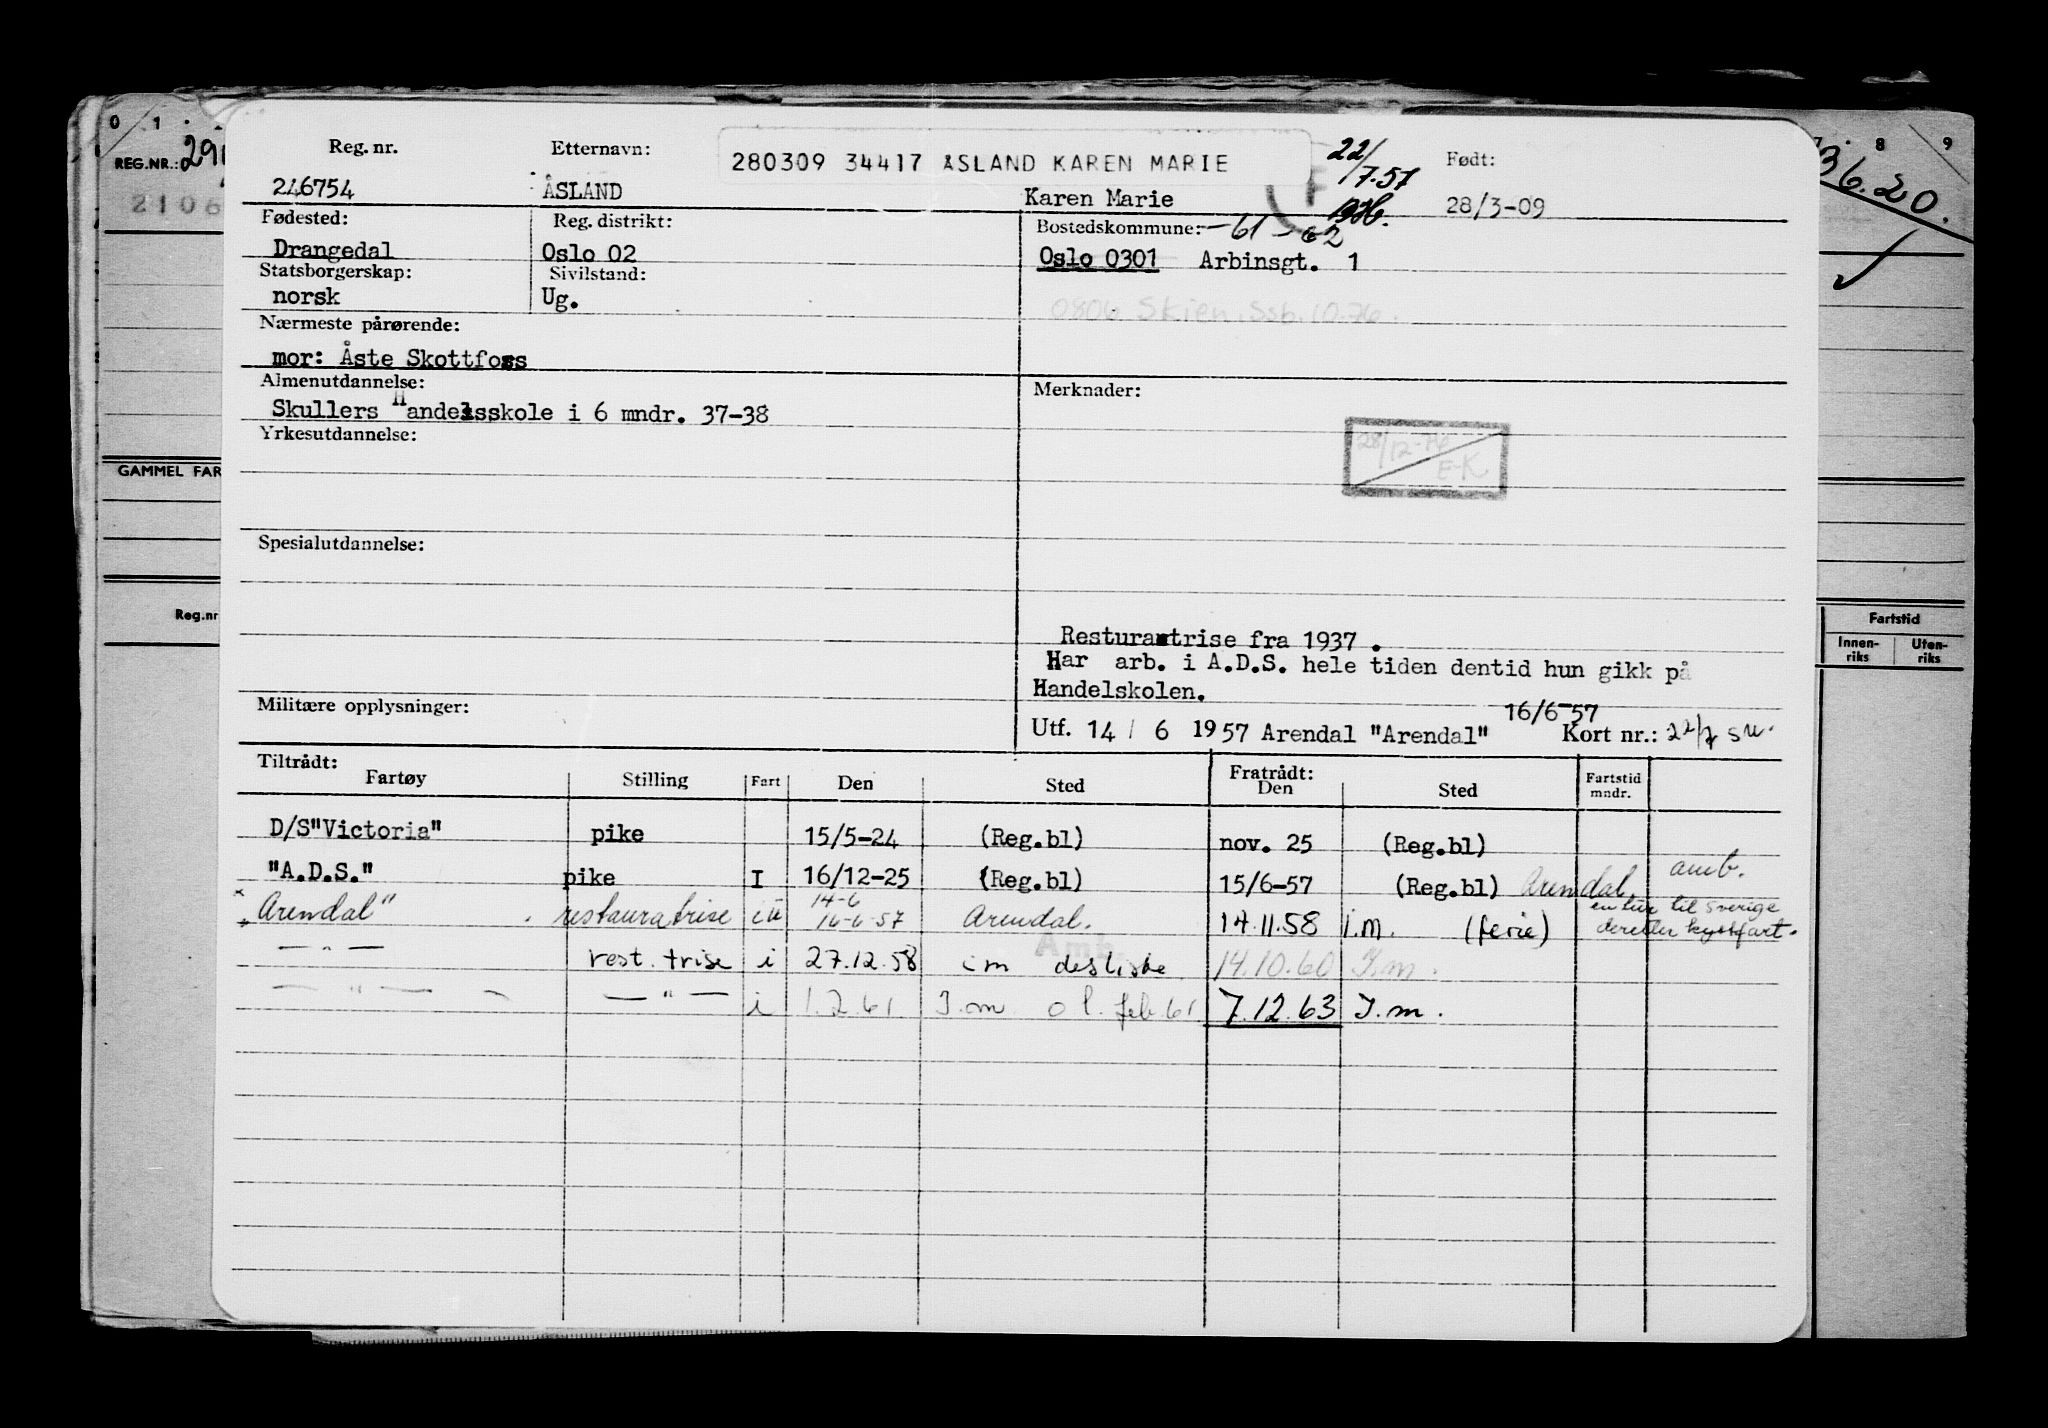 0 1
REG.NR.:
2106
GAMMEL FAR
Reg.nr
8 9
36.20.
Fartstid
Innen-riks Uten-riks
Reg. nr. Etternavn: 280309 34417 ÅSLAND KAREN MARIE 22/7.57 Født:
246754 ÅSLAND Karen Marie 28/3-09
Fødested: Reg. distrikt: Bostedskommune: -61-62
Drangedal Oslo 02 Oslo 0301 Arbinsgt. 1
Statsborgerskap: Sivilstand:
norsk Ug. 0806 Skien. Ssb. 10.76.
Nærmeste pårørende:
mor: Åste Skottfoss
Almenutdannelse: Merknader:
Skullers Handelsskole i 6 mndr. 37-38
Yrkesutdannelse: 28/12-76 E-K
Spesialutdannelse:
Resturantrise fra 1937 .
Har arb. i A.D.S. hele tiden dentid hun gikk på
Handelskolen.
Militære opplysninger: 16/6-57
Utf. 14 / 6 1957 Arendal "Arendal" Kort nr.: 22/7 su.
Tiltrådt: Fratrådt:
Fartøy Stilling Fart Den Sted Den Sted Fartstid mndr.
D/S"Victoria" pike 15/5-24 (Reg.bl) nov. 25 (Reg.bl)
"A.D.S." pike I 16/12-25 (Reg.bl) 15/6-57 (Reg.bl) Arendal. amb.
"Arendal" restauratrise iu 14-6 16-6-57 Arendal. 14.11.58 i.m. (ferie) en tur til sverige deretter kystfart.
— " — rest. trise i 27.12.58 im desliste 14.10.60 I.m.
— " — — " — i 1.2.61. I.m o l. feb 61 7.12.63 I.m.